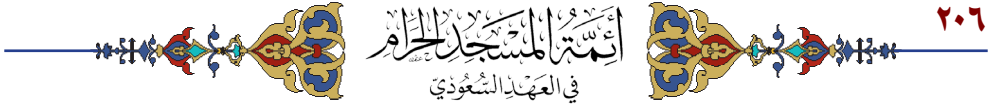 ٢٠٦
أَئِمَّةُ المَسْجِدِ الحَرَامِ
في العَهْدِ السُّعُودِيّ